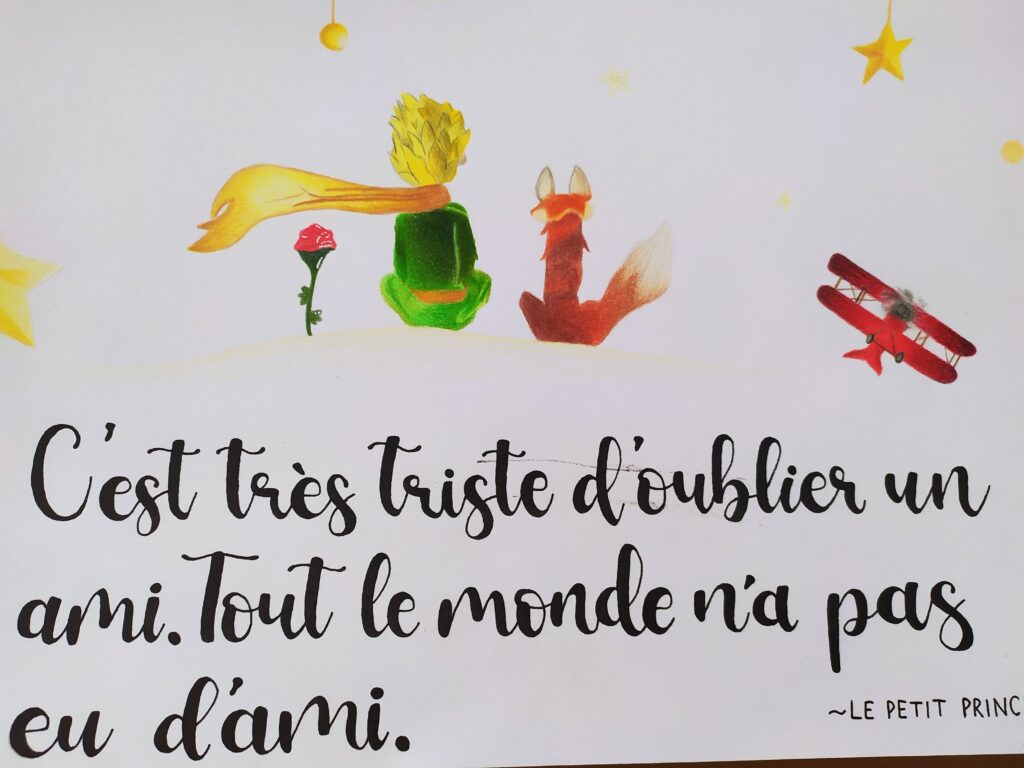 C'est très triste d'oublier un
ami. Tout le monde n'a pas
eu d'ami.
~LE PETIT PRINC